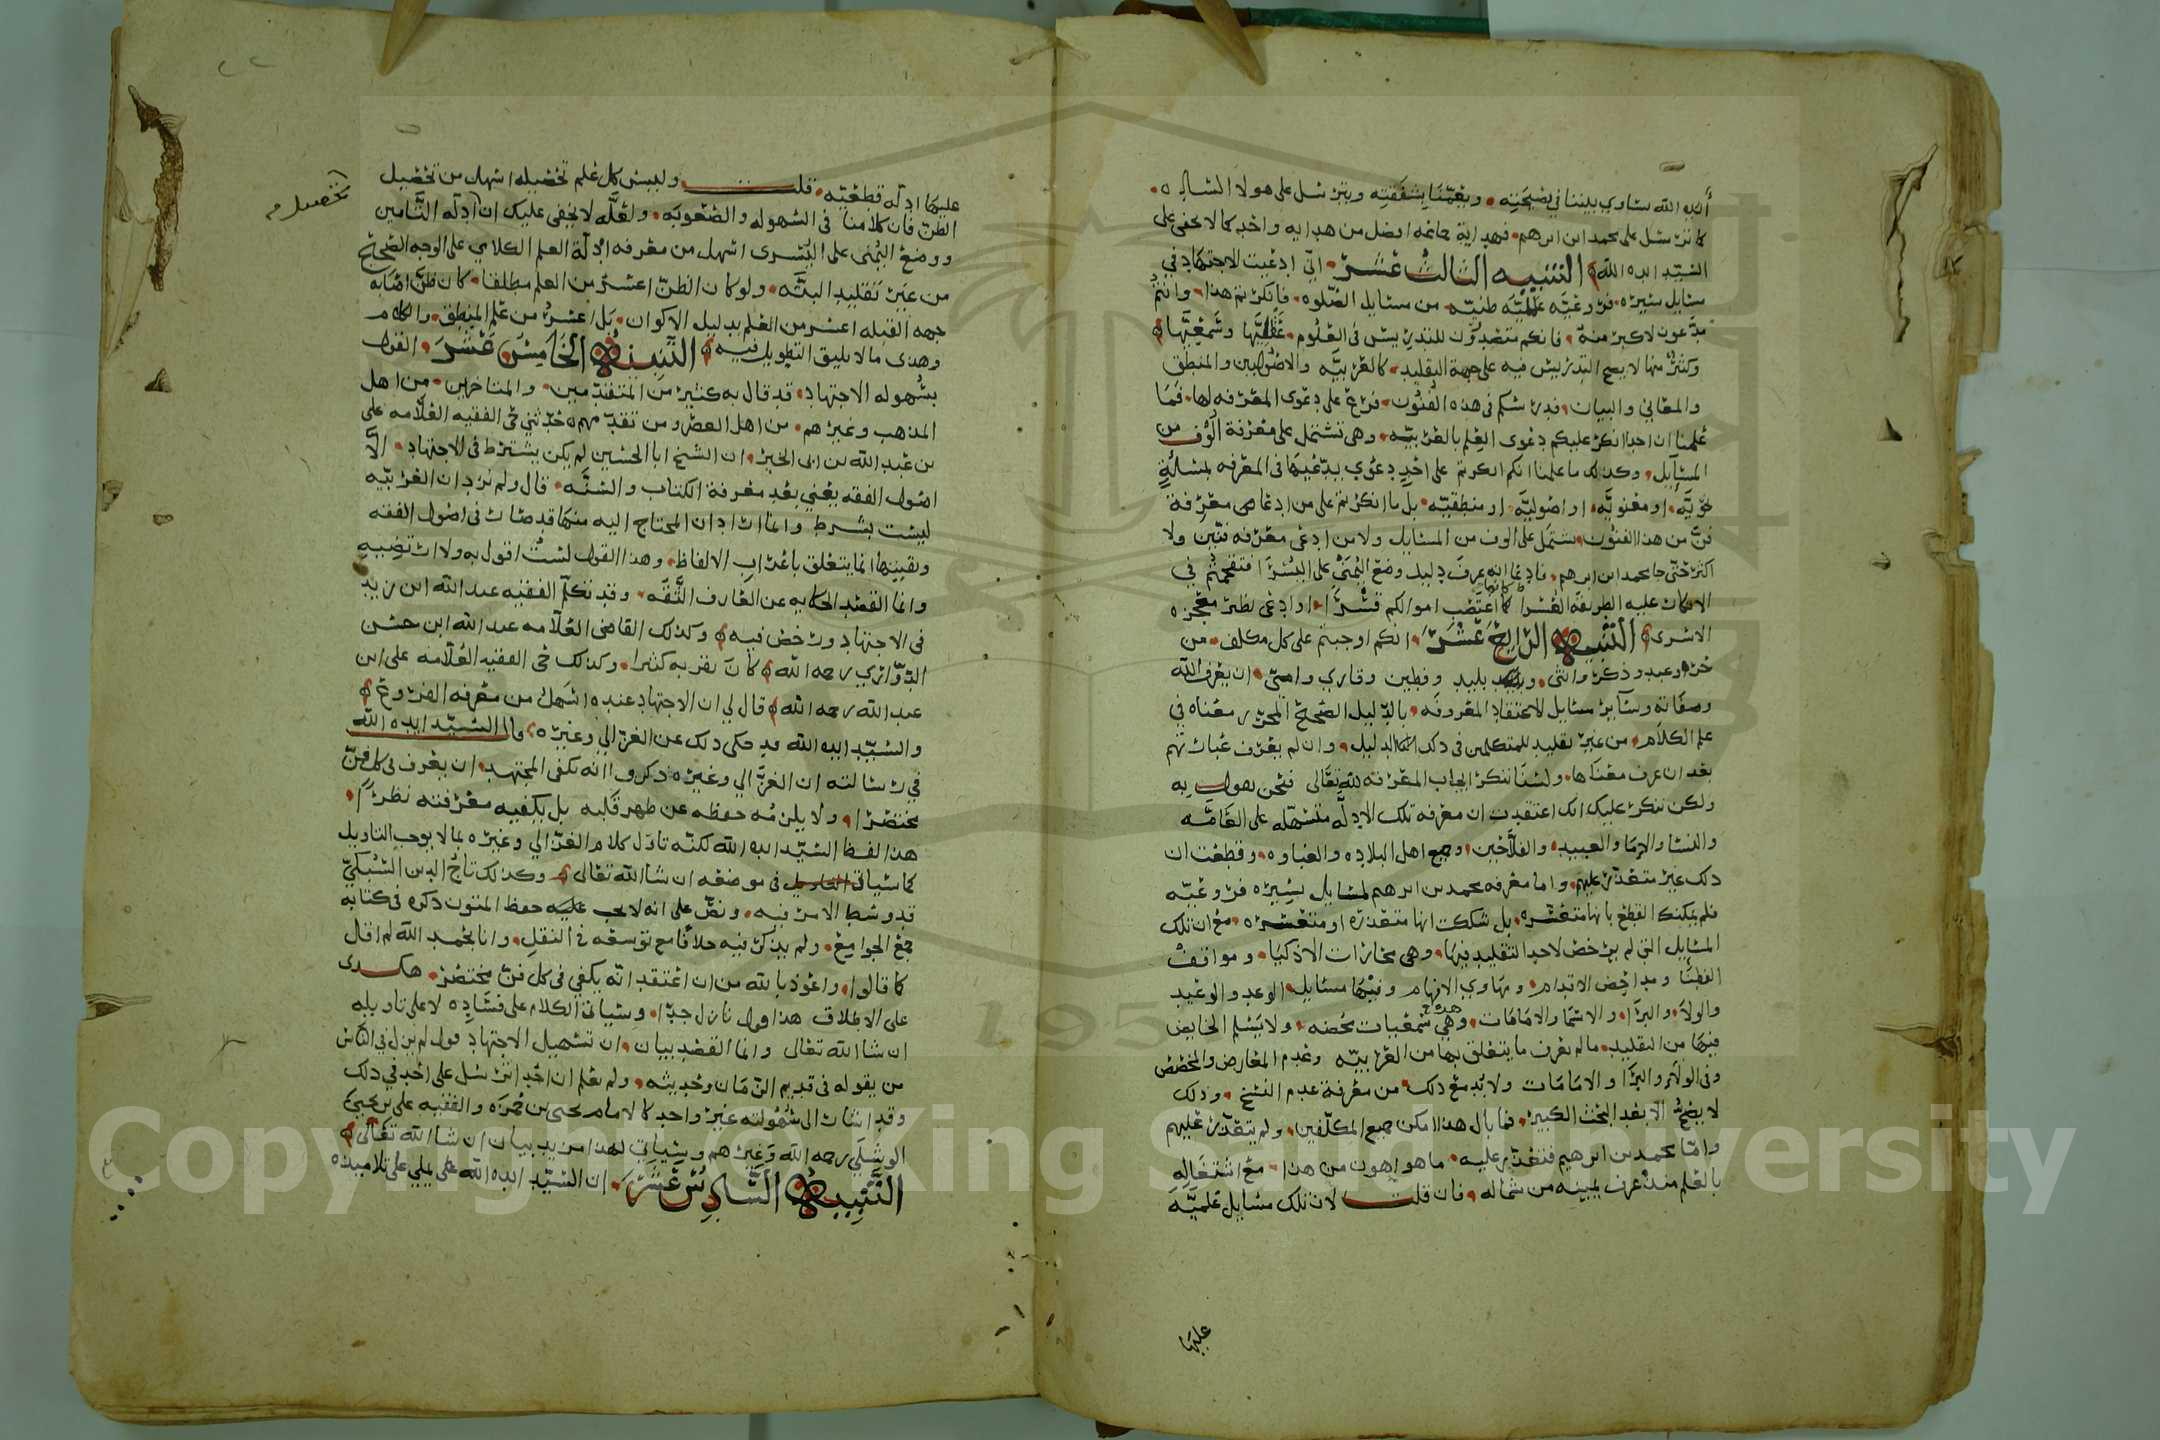 أيده الله ساوى بيننا في نصيحته وبغمنا بشفقته ويترسل على هولا الساده
كما ترسل على محمد ابن ابرهيم فهداية جماعه افضل من هدايه واحد كما لا يخفى على
السيد ايده الله التنبيه الثالث عشر اني ادعيت الاجتهاد في
مسايل يسيره فروعيه عمليه ظنيه من مسايل الصلوه فانكرتم هذا وانتم
مدعون لاكبر منه فانكم متصدون للتدريس في العلوم عقليها وسمعيها
وكثير منها لا يصح التدريس فيه على جهة التقليد كالعربيه والاصولين والمنطق
والمعاني والبيان فدرسكم في هذه الفنون فرع على دعوى المعرفه لها فما
علمنا ان احدا انكر عليكم دعوى العلم بالعربيه وهي تشتمل على معرفة الوف من
المسايل وكذلك ما علمنا انكم انكرتم على احد دعوى يدعيها في المعرفه بمسئلة
نحويه او معنويه او اصوليه او منطقيه بل ما انكرتم على من ادعا معرفة
فن من هذه الفنون يشتمل على الوف من المسايل ولا من ادعى معرفه فنين ولا
اكثر حتى جا محمد ابن ابرهيم فادعا انه عرف دليل وضع اليمنى على اليسرا فتقحمتم في
الانكار عليه الطريقه العسرا كانما اغتصب اموالكم قسرا او ادعى نظير معجزه
الاسرى التنبيه الرابع عشر انكم اوجبتم على كل مكلف من
حر وعبد وذكر وانثى وبليد وفطين وقاري وامي ان يعرف الله
وصفاته وساير مسايل الاعتقاد المعروفه بالدليل الصحيح المحرر معناه في
علم الكلام من غير تقليد للمتكلمين في ذلك الدليل وان لم يعرف عباراتهم
بعد ان عرف معناها ولسنا ننكر ايجاب المعرفه لله تعالى فنحن نقول به
ولكن ننكر عليك انك اعتقدت ان معرفه تلك الادله متسهله على العامه
والنسا والاما والعبيد والفلاحين وجميع اهل البلاده والغباوه وقطعت ان
ذلك غير متعذر عليهم واما معرفه محمد بن ابرهيم لمسايل يسيره فروعيه
فلم يمكنك القطع بانها متعسره بل شككت انها متعذره او متعسره مع ان تلك
المسايل التي لم يرخص لاحد التقليد فيها وهي محارات الاذكيا ومواقف
الفطنا ومداحض الاقدام ومهاوي الافهام وفيها مسايل الوعد والوعيد
والولا والبرا والاسما والامامات وهي هذه سمعيات محضه ولا يسلم الخايض
فيها من التقليد ما لم يعرف ما يتعلق بها من العربيه وعدم المعارض والمخصص
وفي الولا والبرا والامامات ولا بد مع ذلك من معرفة عدم النسخ وذلك
لا يصح الا بعد البحث الكبير فما بال هذا امكن جميع المكلفين ولم يتعذر عليهم
واما محمد بن ابرهيم فتعذر عليه ما هو اهون من هذا مع اشتغاله
بالعلم منذ عرف يمينه من شماله فان قلت لان تلك مسايل علميه
عليها
عليها ادله قطعيه قلت وليس كل علم تحصيله اسهل من تحصيل
تحصيل
الظن فان كلا منا في السهوله والصعوبه ولعله لا يخفى عليك ان ادله التامين
ووضع اليمنى على اليسرى اسهل من معرفه ادلة العلم الكلامي على الوجه الصحيح
من غير تقليد البته ولو كان الظن اعسر من العلم مطلقا كان ظن اصابه
جهه القبله اعسر من العلم بدليل الاكوان بل اعسر من علم المنطق والكلام
وهذى ما لا يليق التطويل فيه التنبيه الخامس عشر القول
بسهوله الاجتهاد قد قال به كثير من المتقدمين والمتاخرين من اهل
المذهب وغيرهم من اهل العصر ومن تقدمهم حدثني حي الفقيه العلامه علي
بن عبد الله بن ابي الخير ان الشيخ ابا الحسين لم يكن يشترط في الاجتهاد الا
اصول الفقه يعني بعد معرفة الكتاب والسنه قال ولم يرد ان العربيه
ليست بشرط وانما اراد ان المحتاج اليه منها قد صار في اصول الفقه
وبقيتها انما يتعلق باعراب الالفاظ وهذا القول لست اقول به ولا ارتضيه
وانما القصد الحكايه عن العارف الثقه وقد تكلم الفقيه عبد الله ابن زيد
في الاجتهاد ورخص فيه وكذلك القاضي العلامه عبد الله ابن حسن
الدواري رحمه الله كان يقر به كثيرا وكذلك حي الفقيه العلامه علي ابن
عبد الله رحمه الله قال لي ان الاجتهاد عنده اسهل من معرفه الفروع
والسيد ايده الله قد حكى ذلك عن الغزالي وغيره قال السيد ايده الله
في رسالته ان الغزالي وغيره ذكروا انه يكفي المجتهد ان يعرف في كل فن
مختصرا ولا يلزمه حفظه عن ظهر قلبه بل يكفيه معرفته نظرا
هذا لفظ السيد ايده الله لكنه تاول كلام الغزالي وغيره بما لا يوجب التاويل
كما سياتي في موضعه ان شا الله تعالى وكذلك تاج الدين السبكي
قد وسط الامر فيه ونص على انه لا يجب عليه حفظ المتون ذكره في كتابه
جمع الجوامع ولم يذكر فيه خلافا مع توسعه في النقل وانا بحمد الله لم اقل
كما قالوا واعوذ بالله من ان اعتقد انه يكفي في كل فن مختصر هكذى
على الاطلاق هذا قول نازل جدا وسياتي الكلام على فساده لا على تاويله
ان شا الله تعالى وانما القصد بيان ان تسهيل الاجتهاد قول لم يزل في الناس
من يقوله في قديم الزمان وحديثه ولم نعلم ان احدا ترسل على احد في ذلك
وقد اشار الى سهولته غير واحد كالامام يحيى بن حمزه والفقيه علي بن يحيى
الوشلي رحمه الله وغيرهم وسياتي لهذا مزيد بيان ان شا الله تعالى
التنبيه السادس عشر ان السيد ايده الله على يملي على تلاميذه
Copyright © King Saud University
195